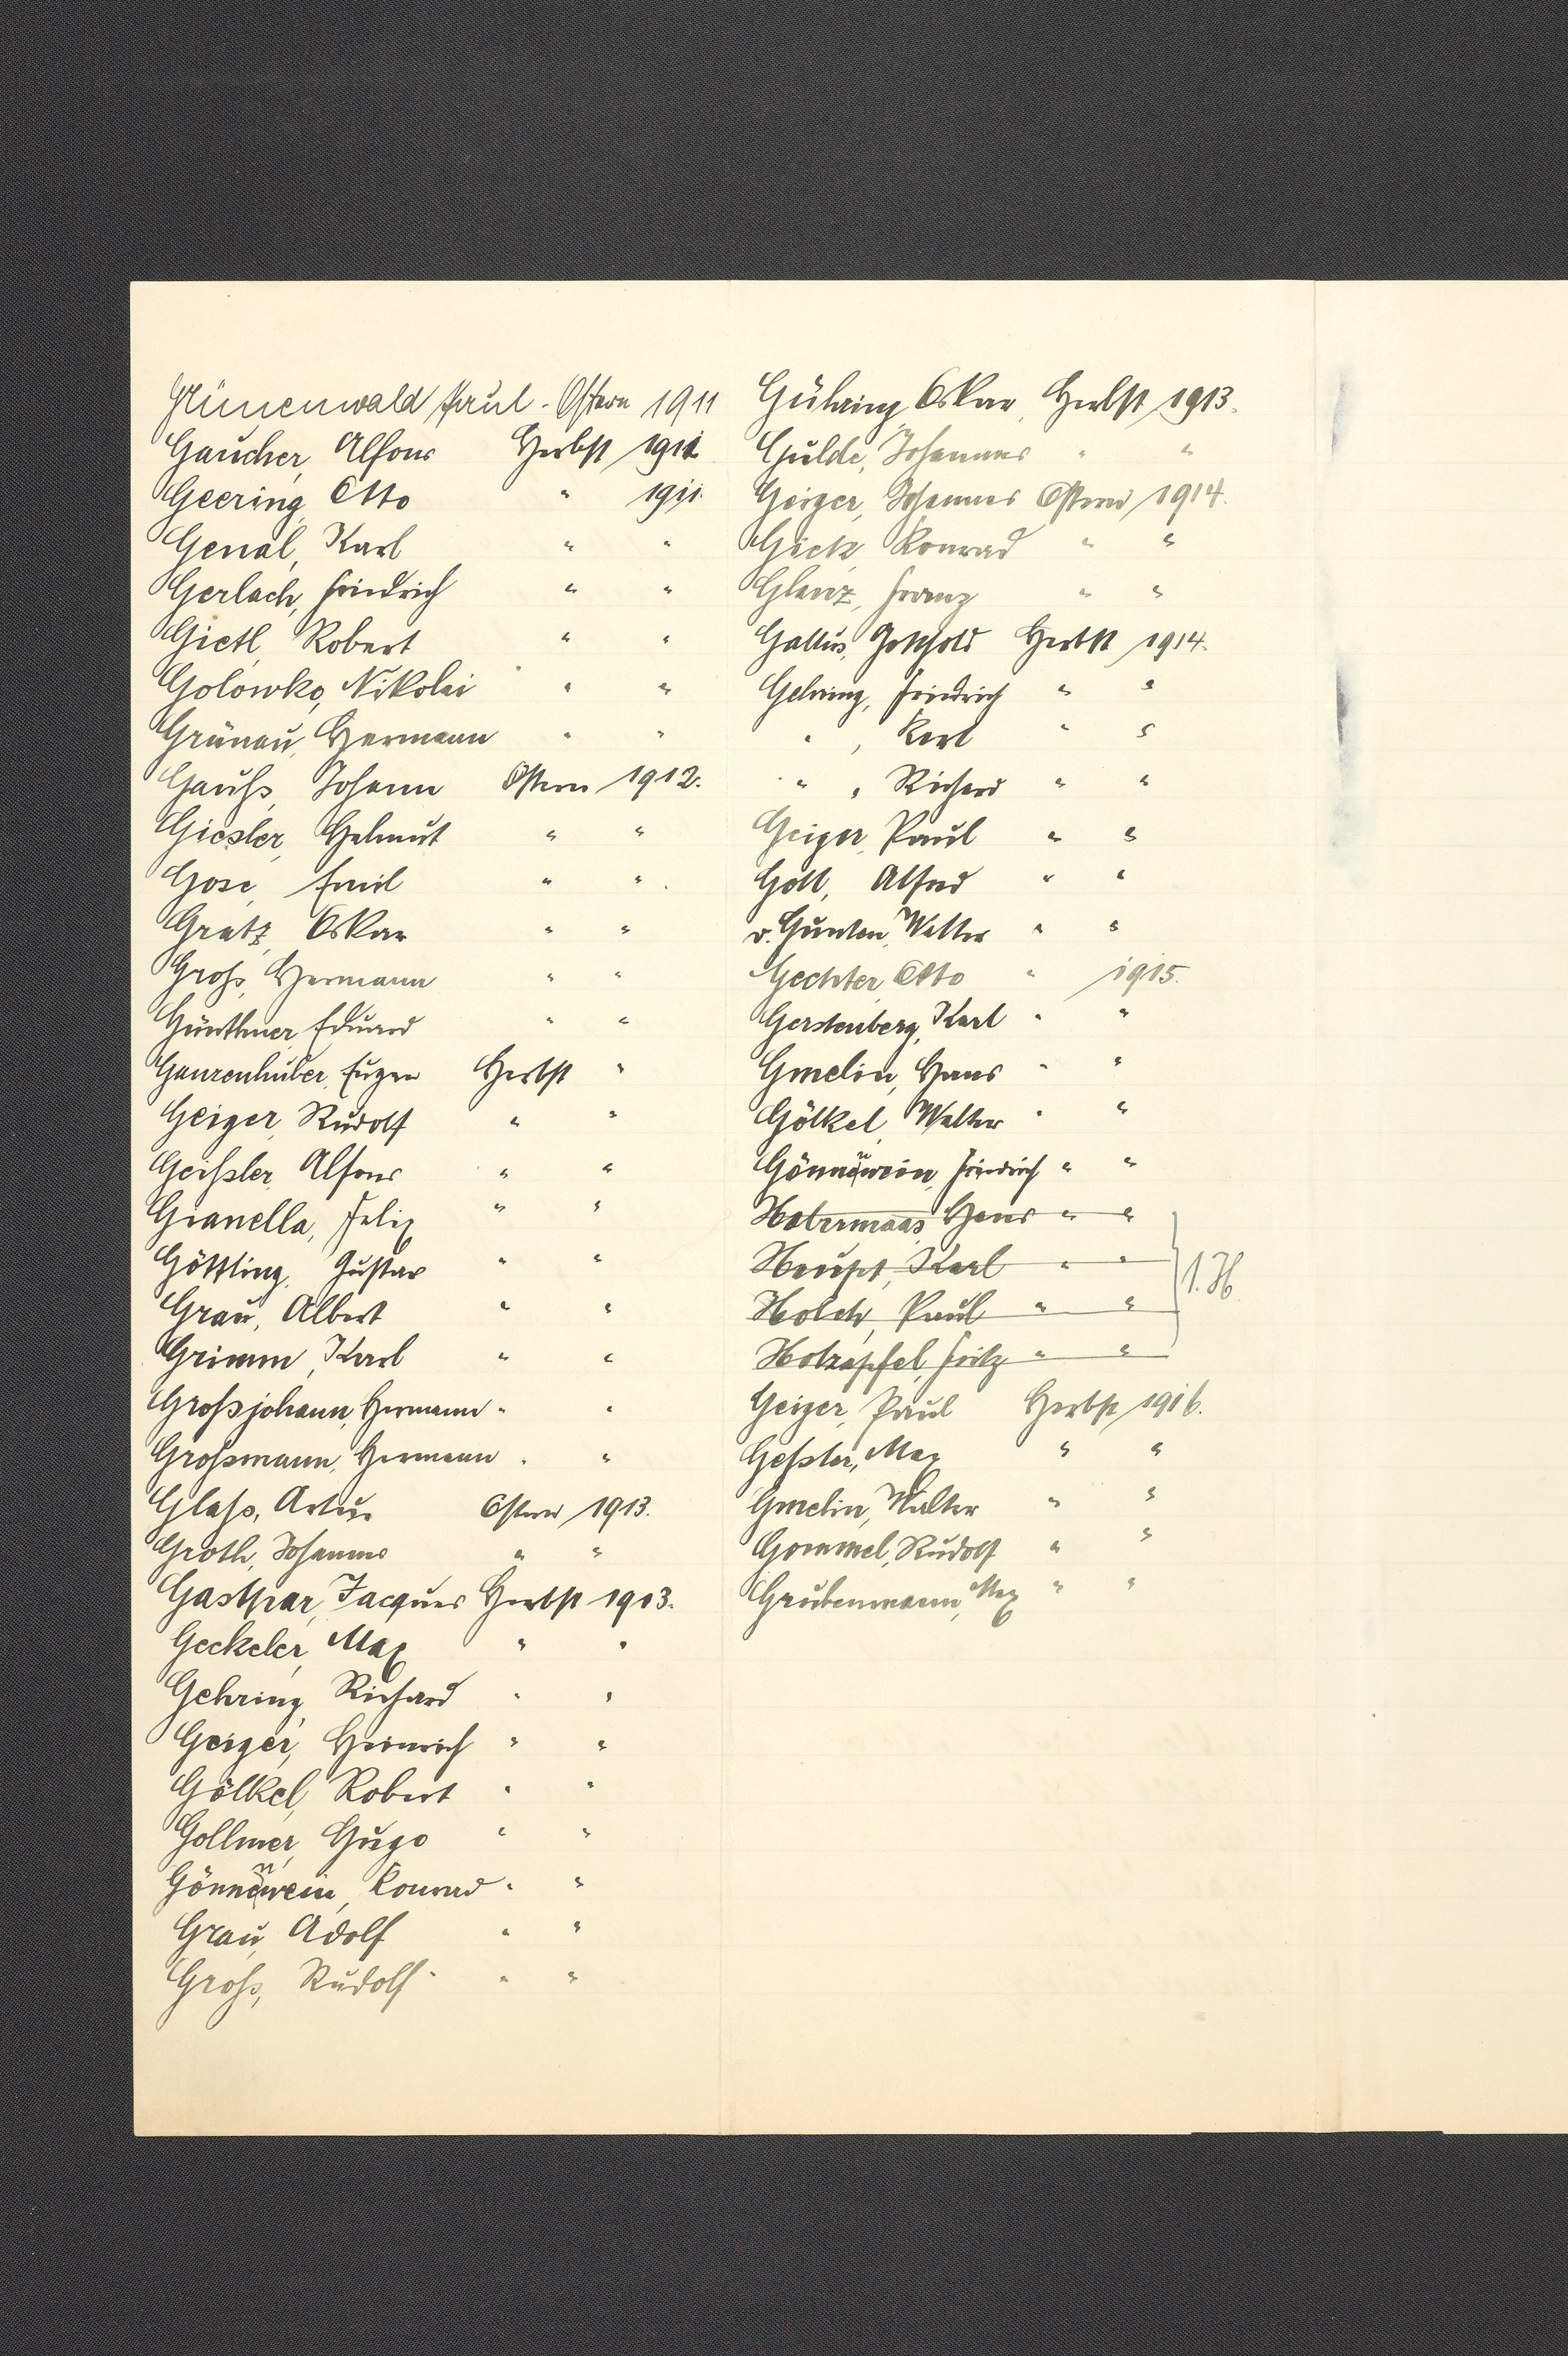 Grünenwald Paul - Ostern 1911
Gaucher, Alfons Herbst 1911
Geering, Otto " 1911.
Genal, Karl " "
Gerlach, Friedrich " "
Gietl, Robert " "
Golowko, Nikolai " "
Grünau, Hermann " "
Gauß, Johann Ostern 1912.
Giesler, Helmut " "
Gose, Emil " "
Gratz, Oskar " "
Groß, Hermann " "
Günthner, Eduard " "
Ganzenhuber, Eugen Herbst "
Geiger, Rudolf " "
Geißler, Alfons " "
Gianella, Felix " "
Göttling, Gustav " "
Grau, Albert " "
Grimm, Karl " "
Großjohann, Hermann " "
Großmann, Hermann " "
Glaß, Artur Ostern 1913.
Groth, Johannes " "
Gasthar, Jacques Herbst 1913.
Geckeler, Max " "
Gehring, Richard " "
Geiger, Heinrich " "
Gölkel, Robert " "
Gollmer, Hugo " "
Gönnenwein, Konrad " "
Grau, Adolf " "
Groß, Rudolf " "
Gühring, Oskar, Herbst 1913.
Gulde, Johannes " "
Geiger, Johannes Ostern 1914.
Gick, Konrad " "
Glanz, Franz " "
Gallus, Gotthold Herbst 1914.
Gehring, Friedrich " "
" , Karl " "
" , Richard " "
Geiger, Paul " "
Goll, Alfred " "
v. Gunten, Walter " "
Gechter, Otto " 1915.
Gerstenberg, Karl " "
Gmelin, Hans " "
Gölkel, Walter " "
Gönnenwein, Friedrich " "
Habermaas, Hans " "
Karl " "
Holch, Paul " "
Holzapfel, Fritz " "
1. H.
Geiger, Paul Herbst 1916.
Geßler, Max " "
Gmelin, Walter " "
Gommel, Rudolf " "
Grubenmann, Max " "